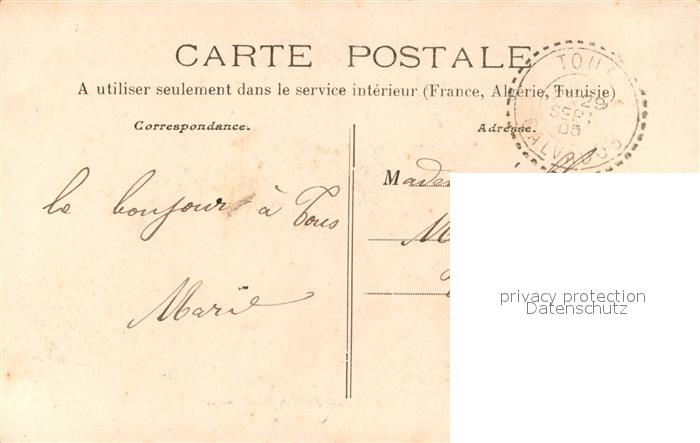 CARTE POSTALE
A utiliser seulement dans le service intérieur (France, Algérie, Tunisie)
Correspondance.
Adresse.
TOU
29
SEPT
05
CALVADOS
Made
le bonjour à Tous
M
Marie
privacy protection
Datenschutz